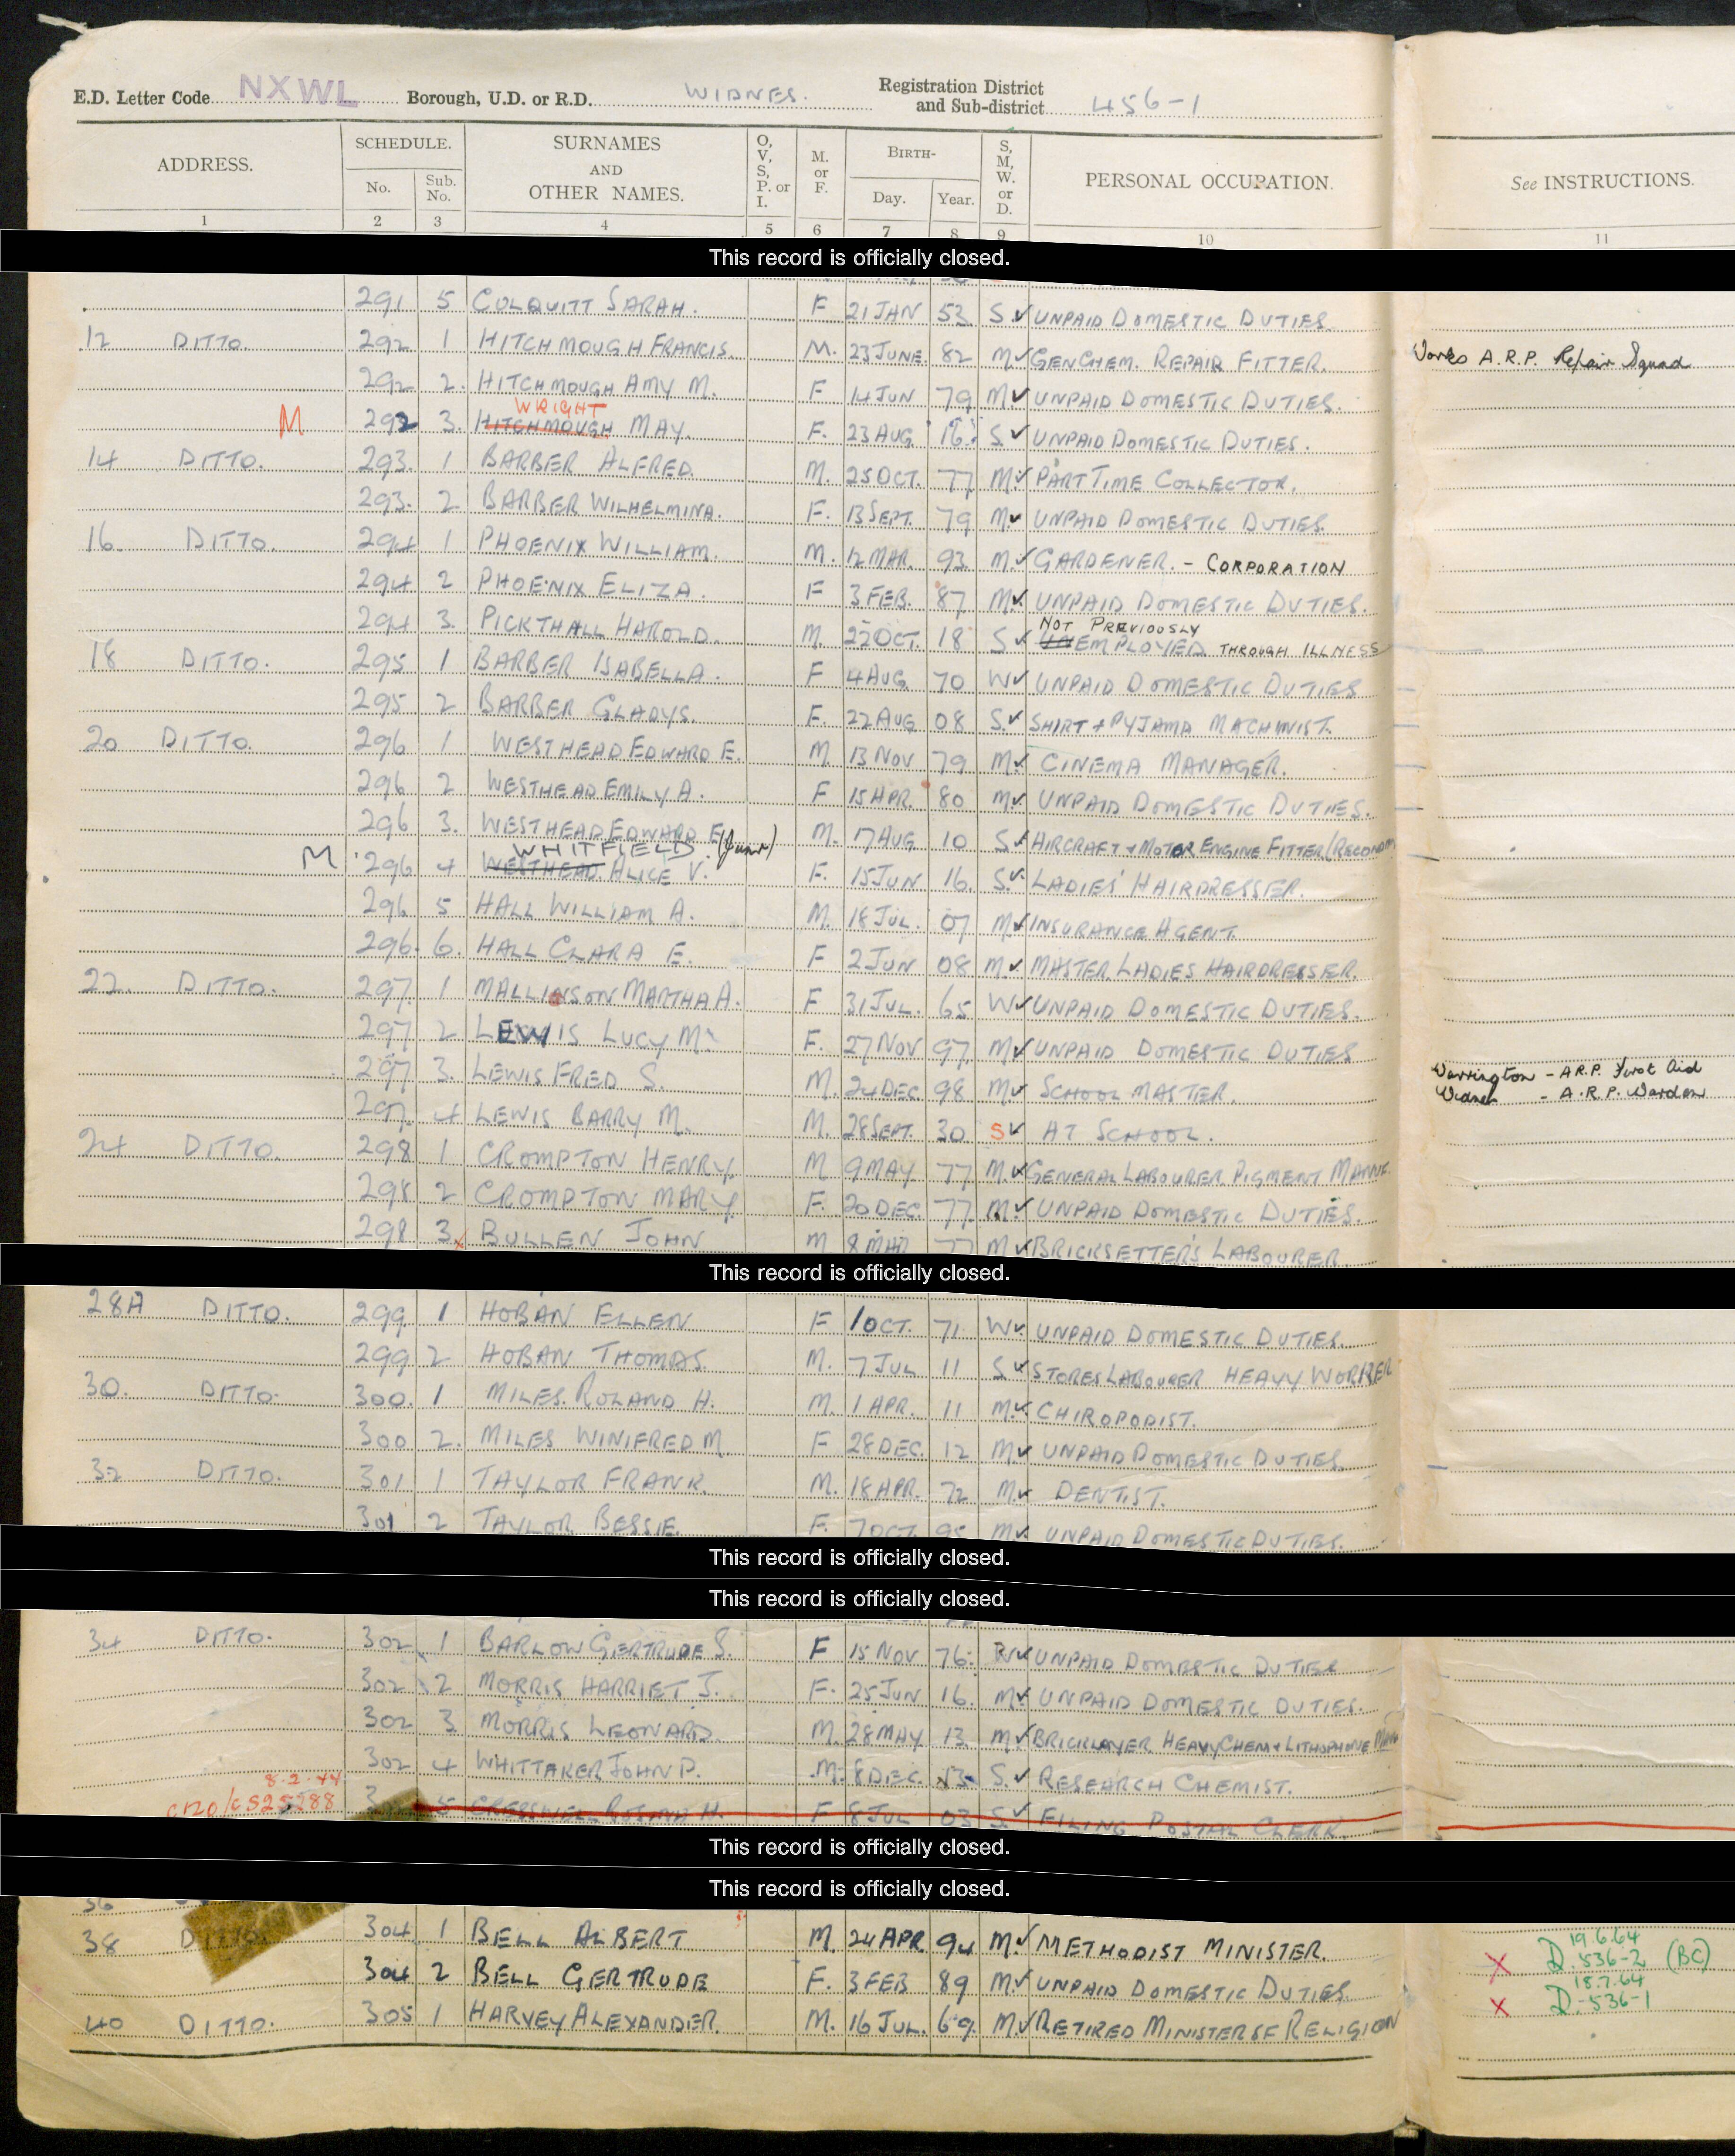 E.D. Letter Code NXWL Borough, U.D. or R.D. WIDNES. Registration District and Sub-district 456-1
ADDRESS. SCHEDULE. No. Sub. No. SURNAMES AND OTHER NAMES. O, V, S, P. or I. M. or F. BIRTH- Day. Year. S, M, W. or D. PERSONAL OCCUPATION. See INSTRUCTIONS.
1 2 3 4 5 6 7 8 9 10 11
This record is officially closed.
291 5 COLQUITT SARAH. F 21 JAN 53 S UNPAID DOMESTIC DUTIES.
12 DITTO 292 1 HITCHMOUGH FRANCIS. M. 23 JUNE. 82 M GEN CHEM. REPAIR FITTER. Works A.R.P. Repair Squad
292 2. HITCHMOUGH AMY M. F 14 JUN 79 M UNPAID DOMESTIC DUTIES.
WRIGHT
M 292 3. HITCHMOUGH MAY. F. 23 AUG 16 S UNPAID DOMESTIC DUTIES.
14 DITTO. 293. 1 BARBER ALFRED. M. 25 OCT. 77 M PART TIME COLLECTOR.
293. 2 BARBER WILHELMINA. F. 13 SEPT. 79 M UNPAID DOMESTIC DUTIES.
16. DITTO. 294 1 PHOENIX WILLIAM. M. 12 MAR. 93. M. GARDENER. - CORPORATION
294 2 PHOENIX ELIZA. F 3 FEB. 87 M. UNPAID DOMESTIC DUTIES.
NOT PREVIOUSLY
294 3. PICKTHALL HAROLD. M. 22 OCT. 18 S UNEMPLOYED THROUGH ILLNESS
18 DITTO. 295 1 BARBER ISABELLA. F 4 AUG 70 W UNPAID DOMESTIC DUTIES
295 2 BARBER GLADYS. F. 22 AUG 08 S. SHIRT + PYJAMA MACHINIST.
20 DITTO. 296 1 WESTHEAD EDWARD E. M. 13 NOV 79 M. CINEMA MANAGER.
296 2 WESTHEAD EMILY A. F 15 APR. 80 M. UNPAID DOMESTIC DUTIES.
296 3. WESTHEAD EDWARD E (Junr) M. 17 AUG 10 S AIRCRAFT + MOTOR ENGINE FITTER/(RECONDN
WHITFIELD
M 296 4 WESTHEAD ALICE V. F. 15 JUN 16. S. LADIES' HAIRDRESSER.
296 5 HALL WILLIAM A. M. 18 JUL. 07 M. INSURANCE AGENT.
296. 6. HALL CLARA E. F 2 JUN 08 M MASTER LADIES HAIRDRESSER.
22. DITTO. 297 1 MALLINSON MARTHA A. F 31 JUL. 65 W UNPAID DOMESTIC DUTIES.
297 2 LEWIS LUCY M. F. 27 NOV 97. M UNPAID DOMESTIC DUTIES
297 3. LEWIS FRED S. M. 24 DEC. 98 M SCHOOL MASTER. Warrington - A.R.P. First Aid
Widnes - A.R.P. Warden
297. 4 LEWIS BARRY M. M. 28 SEPT. 30 S AT SCHOOL.
24 DITTO. 298 1 CROMPTON HENRY. M 9 MAY 77 M. GENERAL LABOURER PIGMENT MANUF.
298 2 CROMPTON MARY F. 20 DEC. 77. M. UNPAID DOMESTIC DUTIES.
298 3 BULLEN JOHN M 8 MAR 77 M BRICKSETTER'S LABOURER.
This record is officially closed.
28A DITTO. 299 1 HOBAN ELLEN F 1 OCT. 71 W. UNPAID DOMESTIC DUTIES.
299 2 HOBAN THOMAS. M. 7 JUL 11 S STORES LABOURER HEAVY WORKER
30. DITTO. 300. 1 MILES. ROLAND H. M. 1 APR. 11 M. CHIROPODIST.
300 2. MILES WINIFRED M. F 28 DEC. 12 M UNPAID DOMESTIC DUTIES.
32 DITTO. 301 1 TAYLOR FRANK. M. 18 APR. 72 M. DENTIST.
301 2 TAYLOR BESSIE. F. 7 OCT. M. UNPAID DOMESTIC DUTIES.
This record is officially closed.
This record is officially closed.
34 DITTO. 302 1 BARLOW GERTRUDE S. F 15 NOV 76. W UNPAID DOMESTIC DUTIES
302 2 MORRIS HARRIET J. F. 25 JUN 16. M. UNPAID DOMESTIC DUTIES.
302 3 MORRIS LEONARD. M. 28 MAY 13. M BRICKLAYER HEAVY CHEM + LITHOPHONE
302 4 WHITTAKER JOHN P. M. 8 DEC. 13 S. RESEARCH CHEMIST.
8.2.44
CR20/C 525288 5 CRESSWELL ROSINA H. F 8 JUL 03 S. FILING POSTAL CLERK.
This record is officially closed.
This record is officially closed.
36
38 DITTO. 304 1 BELL ALBERT M. 24 APR 94 M. METHODIST MINISTER. X 19.6.64 D.536-2 (BC)
304 2 BELL GERTRUDE F. 3 FEB 89 M. UNPAID DOMESTIC DUTIES. X 18.7.64 D.-536-1
40 DITTO. 305 1 HARVEY ALEXANDER. M. 16 JUL. 69. M. RETIRED MINISTER OF RELIGION